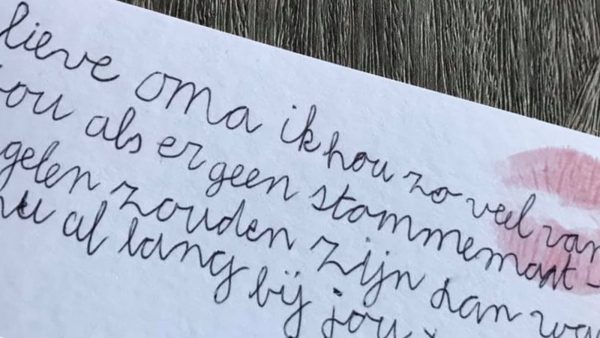 lieve oma ik hou zo veel van
jou als er geen stommemaat-
gelen zouden zijn dan wa
nu al lang bij jou